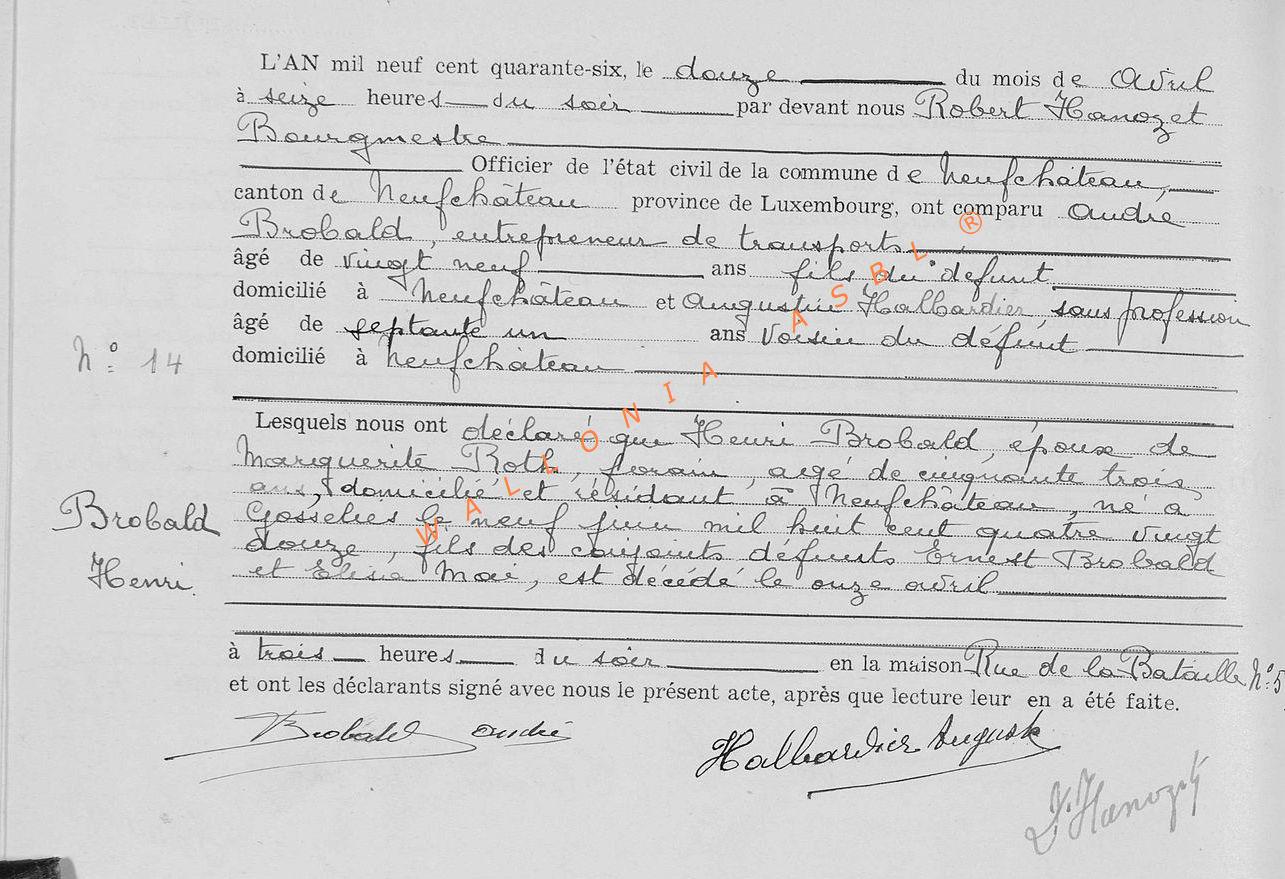 L'AN mil neuf cent quarante-six, le douze du mois de Avril
à seize heures du soir par devant nous Robert Hanozet
Bourgmestre
Officier de l'état civil de la commune de Neufchâteau,
canton de Neufchâteau province de Luxembourg, ont comparu André
Brobald, entrepreneur de transports
âgé de vingt neuf ans fils du défunt
domicilié à Neufchâteau et Augustin Halbardier, sans profession
âgé de septante un ans voisin du défunt
domicilié à Neufchâteau
N° 14
Lesquels nous ont déclaré que Henri Brobald, époux de
Marguerite Roth, forain, agé de cinquante trois
ans, domicilié et résidant à Neufchâteau, né à
Gosselies le neuf juin mil huit cent quatre vingt
douze, fils des conjoints défunts Ernest Brobald
et Elisia Mai, est décédé le onze avril
Brobald
Henri.
à trois heures du soir en la maison Rue de la Bataille N° 5
et ont les déclarants signé avec nous le présent acte, après que lecture leur en a été faite.
Brobald André
Halbardier August
Hanozet
WALLONIA ASBL ®